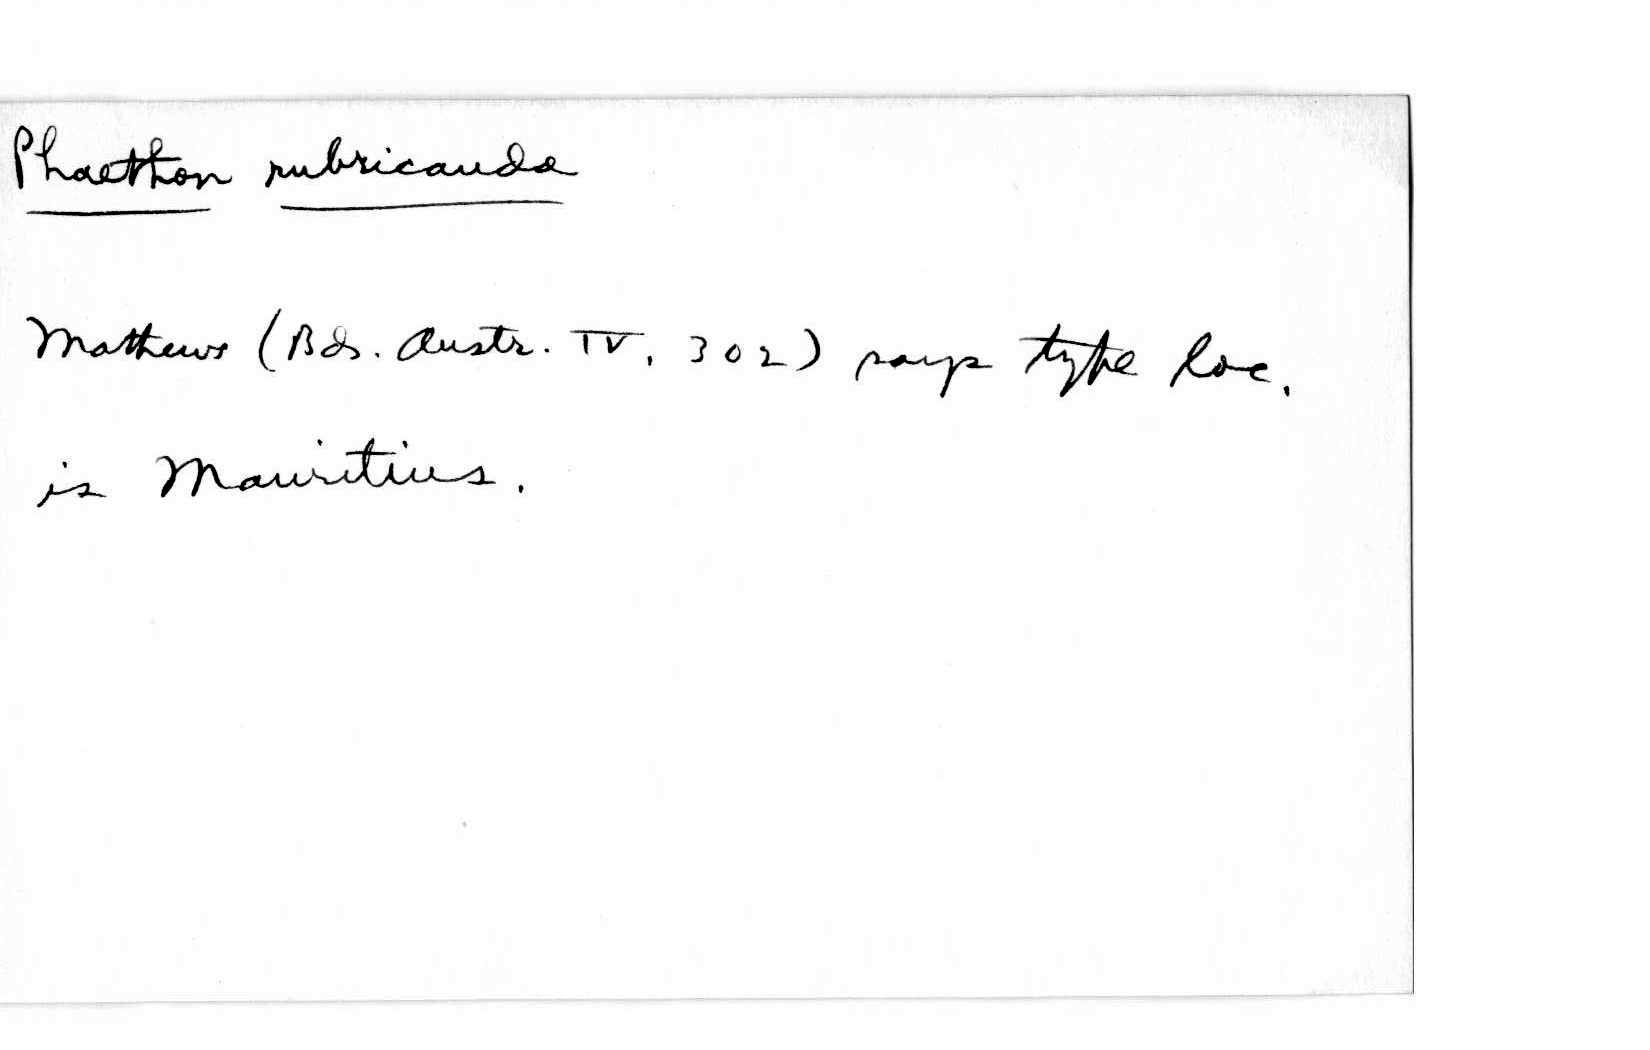 Phaethon rubricauda
Mathews (Bds. Austr. IV, 302) says type loc.
is Mauritius.